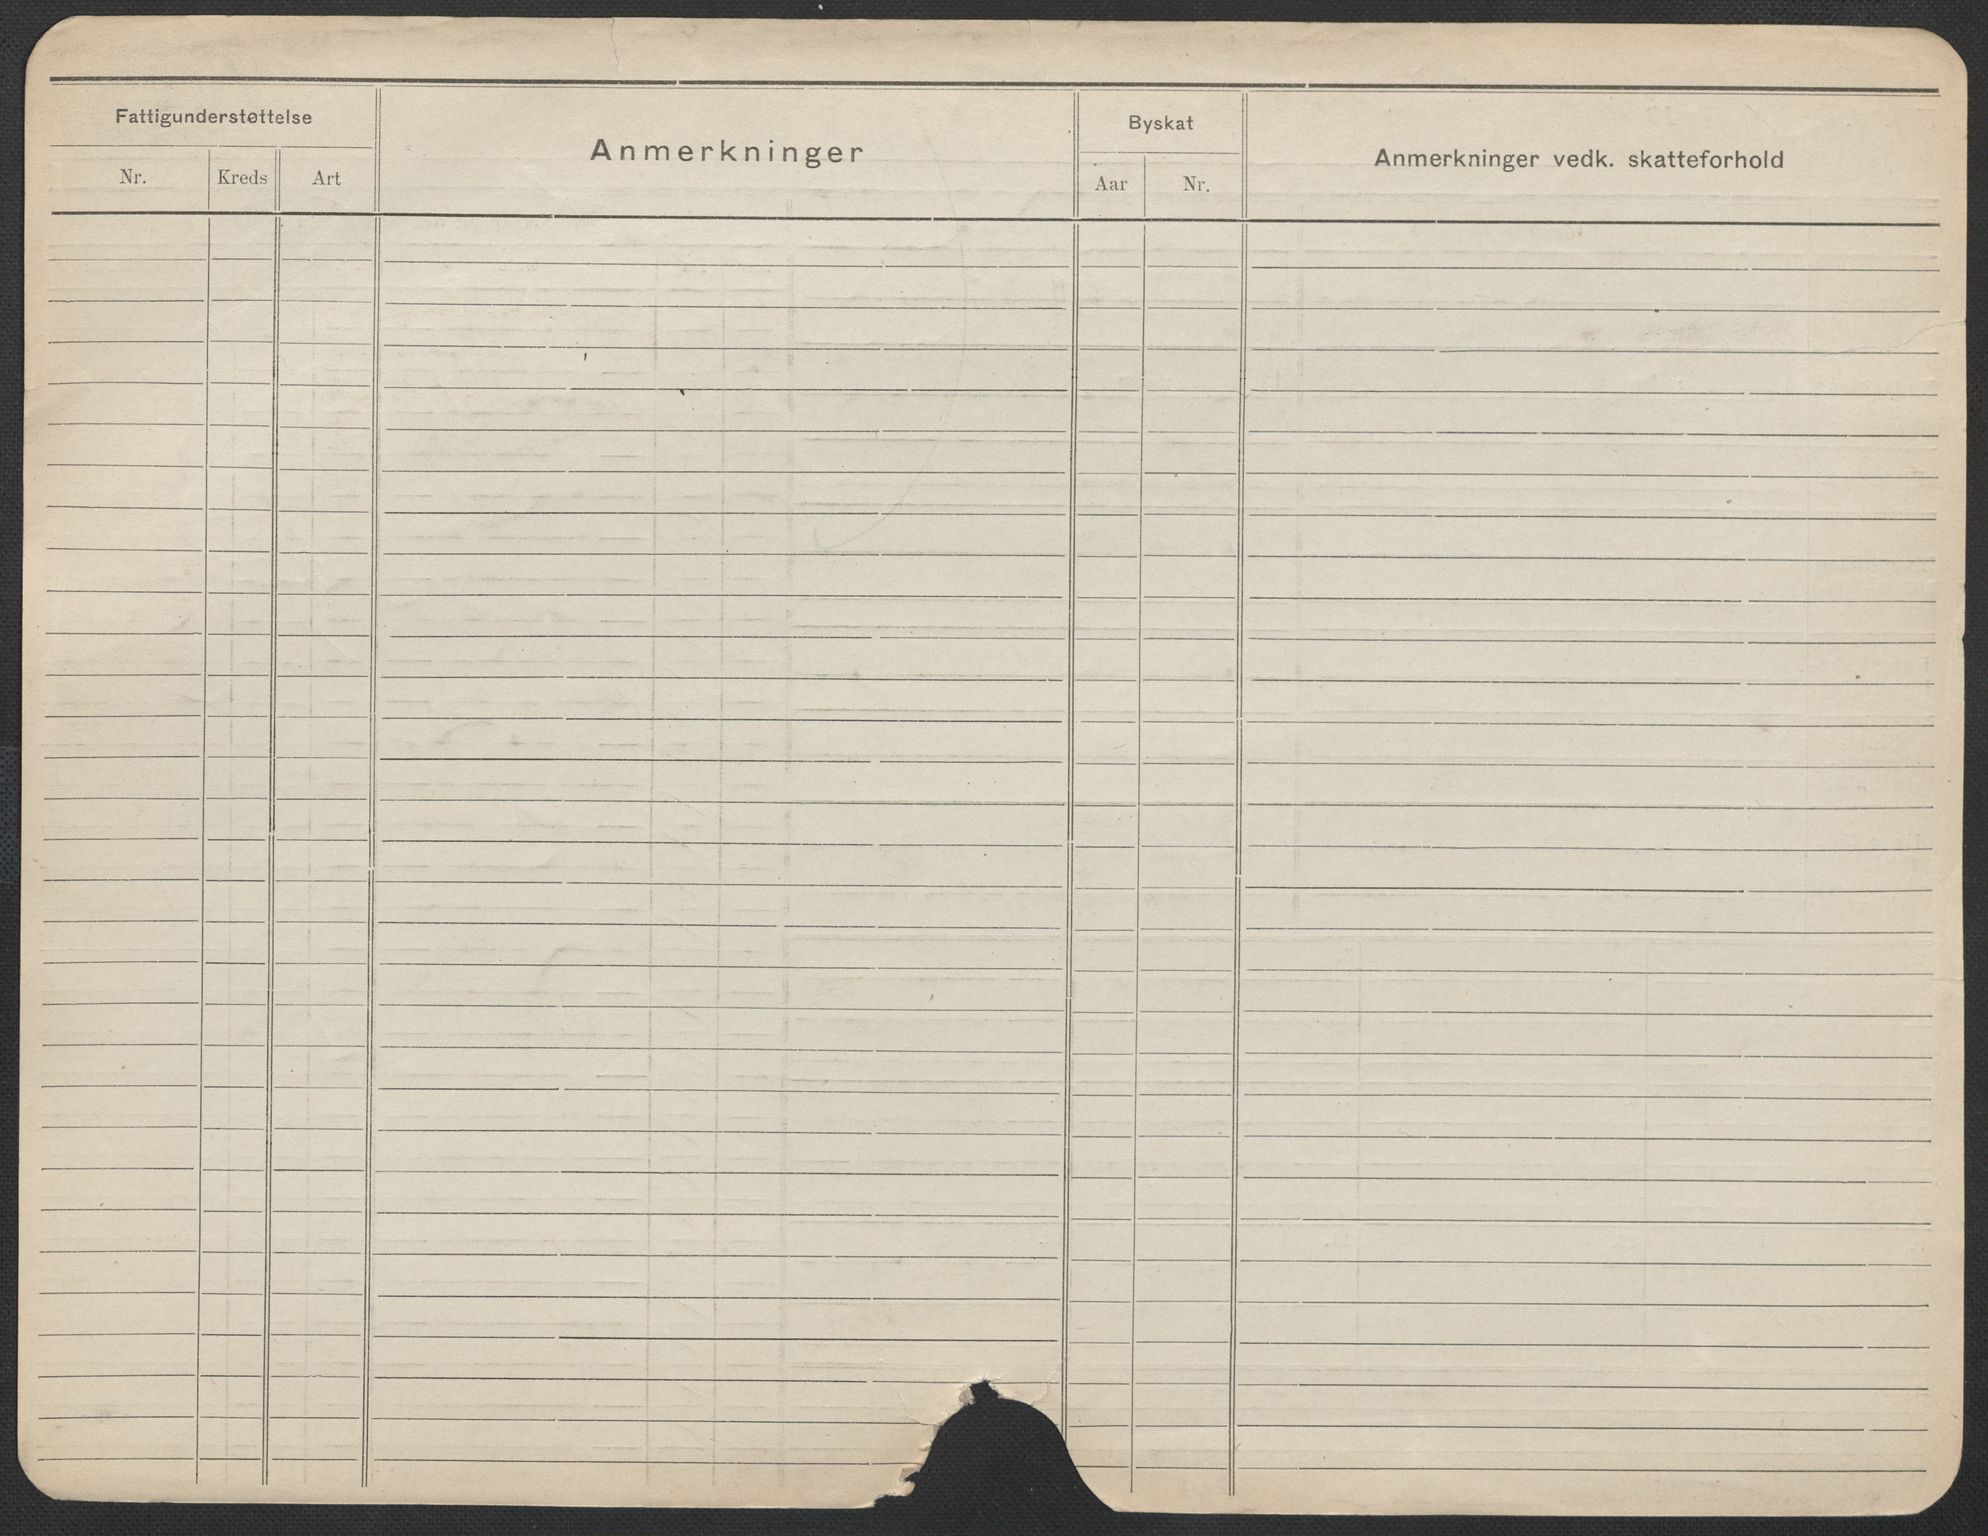 Fattigunderstøttelse
Nr. Kreds Art
Anmerkninger
Byskat
Aar Nr.
Anmerkninger vedk. skatteforhold